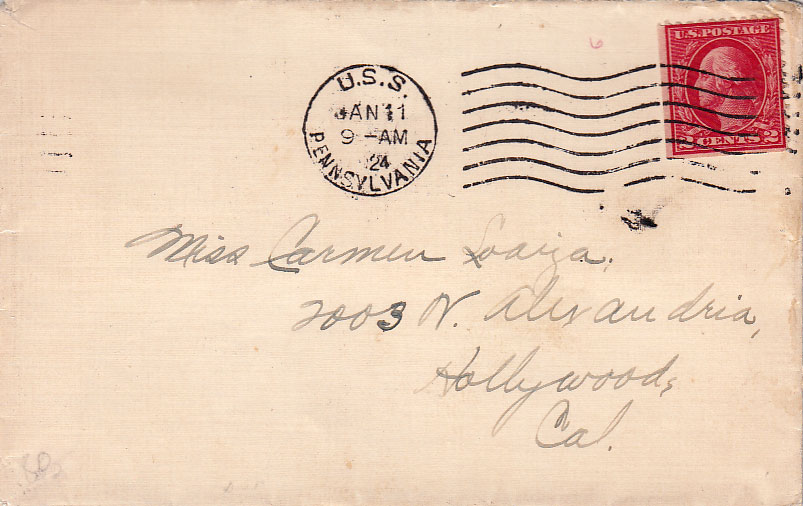 U.S. POSTAGE
2 CENTS 2
U.S.S.
JAN 11
9 - AM
24
PENNSYLVANIA
Miss Carmen Loaiza,
2003 N. Alexandria,
Hollywood,
Cal.